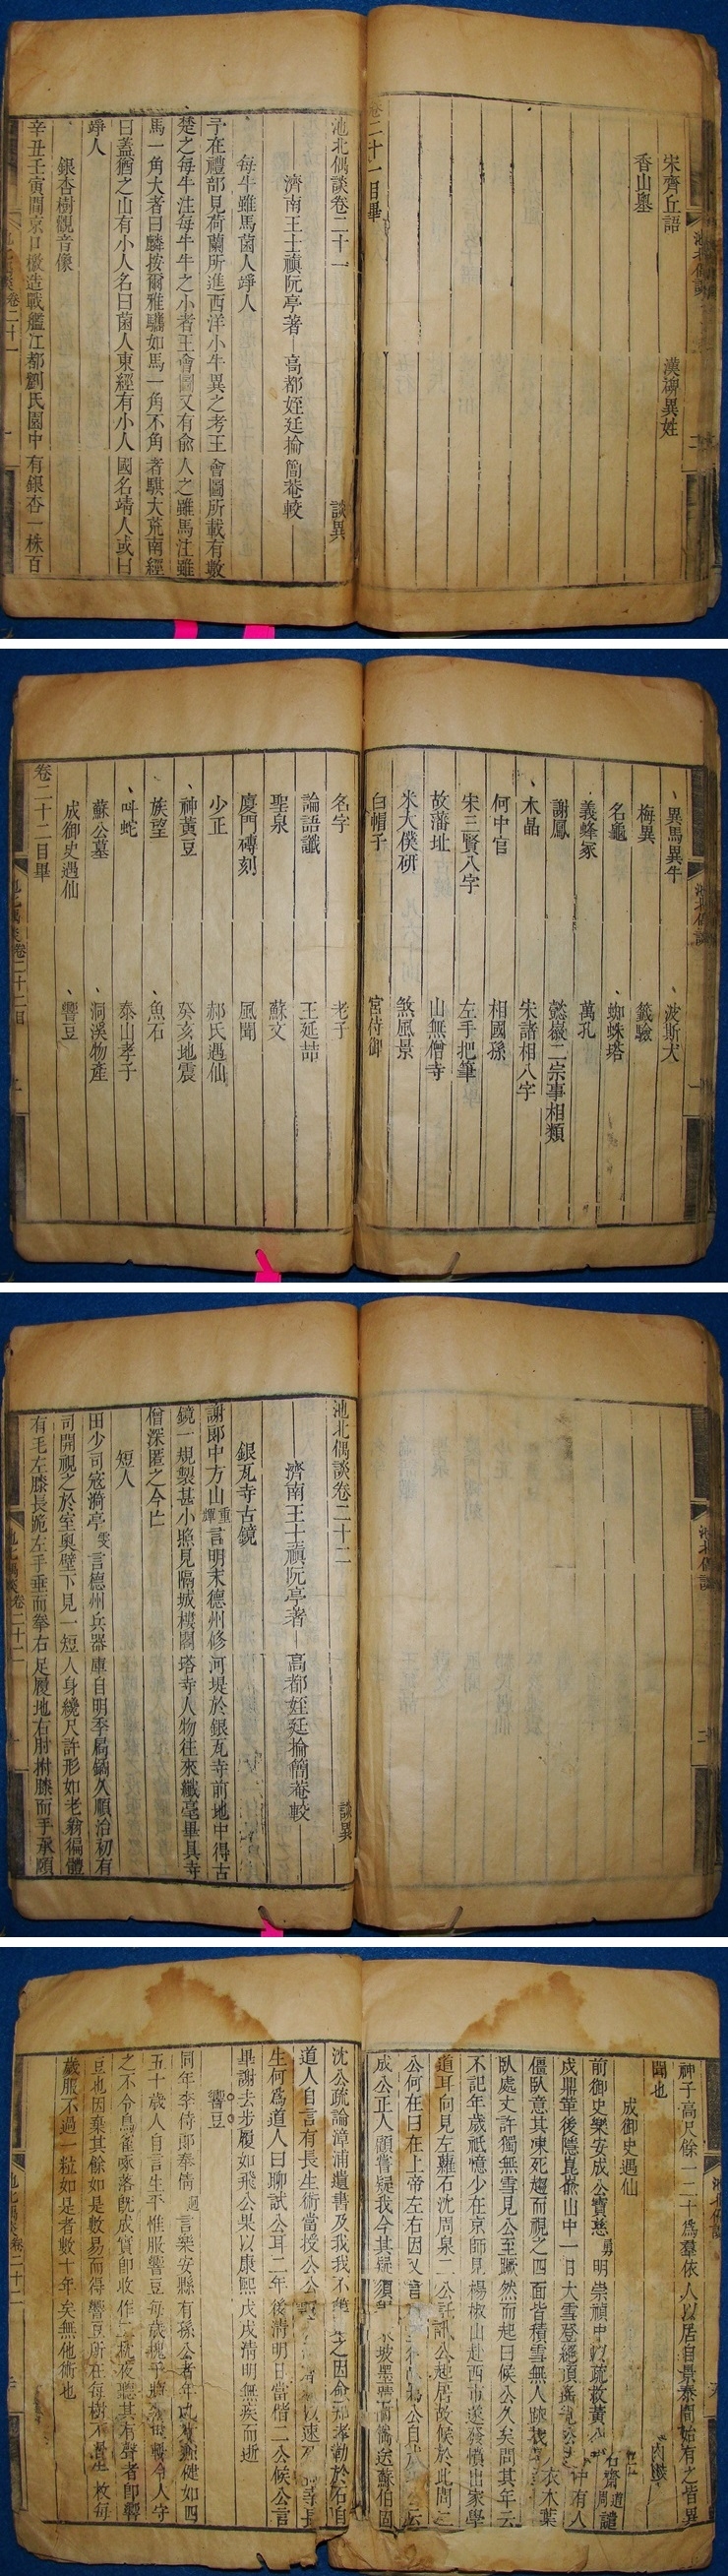 宋齊丘語
漢碑異姓
香山墓
卷二十一目畢
池北偶談卷二十一
談異
濟南王士禛阮亭著
高都姪廷掄簡菴較
每牛雖馬菌人竫人
予在禮部見荷蘭所進西洋小牛異之考王會圖所載有數
楚之每牛注每牛牛之小者王會圖又有兪人之雖馬注雖
馬一角大者曰麟按爾雅驨如馬一角不角者騏大荒南經
曰蓋猶之山有小人名曰菌人東經有小人國名靖人或曰
竫人
銀杏樹觀音像
辛丑壬寅間京口檄造戰艦江都劉氏園中有銀杏一株百
池北偶談卷二十一
異馬異牛
波斯犬
梅異
籤驗
名龜
蜘蛛塔
義蜂冢
萬孔
謝鳳
懿嶽二宗事相類
木晶
宋諸相八字
何中官
相國孫
宋三賢八字
左手把筆
故藩址
山無僧寺
米太僕研
煞風景
白帽子
宮侍御
名字
老子
論語讖
王延喆
聖泉
蘇文
廈門磚刻
風聞
少正
郝氏遇仙
神黃豆
癸亥地震
族望
魚石
叫蛇
泰山孝子
蘇公墓
洞溪物產
成御史遇仙
響豆
卷二十二目畢
池北偶談卷二十二目
池北偶談卷二十二
談異
濟南王士禛阮亭著
高都姪廷掄簡菴較
銀瓦寺古鏡
謝郎中方山重輝言明末德州修河堤於銀瓦寺前地中得古
鏡一規製甚小照見隔城樓閣塔寺人物往來纖毫畢具寺
僧深匿之今亡
短人
田少司寇漪亭雯言德州兵器庫自明季扃鐍久順治初有
司開視之於室奧壁下見一短人身纔尺許形如老翁徧體
有毛左膝長跪左手垂而拳右足履地右肘拊膝而手承頤
池北偶談卷二十二
神子高尺餘一二十爲羣依人以居自景泰間始有之皆異
聞也
成御史遇仙
前御史樂安成公寶慈勇明崇禎中以疏救黃公石齋周道譴
戍鼎革後隱崑崙山中一日大雪登絕頂遙見公中有人
僵臥意其凍死趨而視之四面皆積雪無人跡衣木葉
臥處丈許獨無雪見公至蹶然而起曰候公久矣問其年云
不記年歲祇憶少在京師見楊椒山赴西市遂發憤出家學
道耳向見左蘿石沈周泉二公託訊公起居故候於此問二
公何在曰在上帝左右因又言
成公正人顧嘗疑我今其疑須
沈公疏論漳浦遺書及我
道人自言有長生術當授公
生何爲道人曰聊試公耳二年後清明日當偕二公候公言
畢謝去步履如飛公果以康熙戊戌清明無疾而逝
響豆
同年李侍郎奉倩迥言樂安縣有孫公者年九十餘健如四
五十歲人自言生平惟服響豆每歲槐子將熟令人守
之不令鳥雀啄落旣成實卽收作二枕夜聽其有聲者卽響
豆也因棄其餘如是數易而得響豆所在每樹不過一枚每
歲服不過一粒如是者數十年矣無他術也